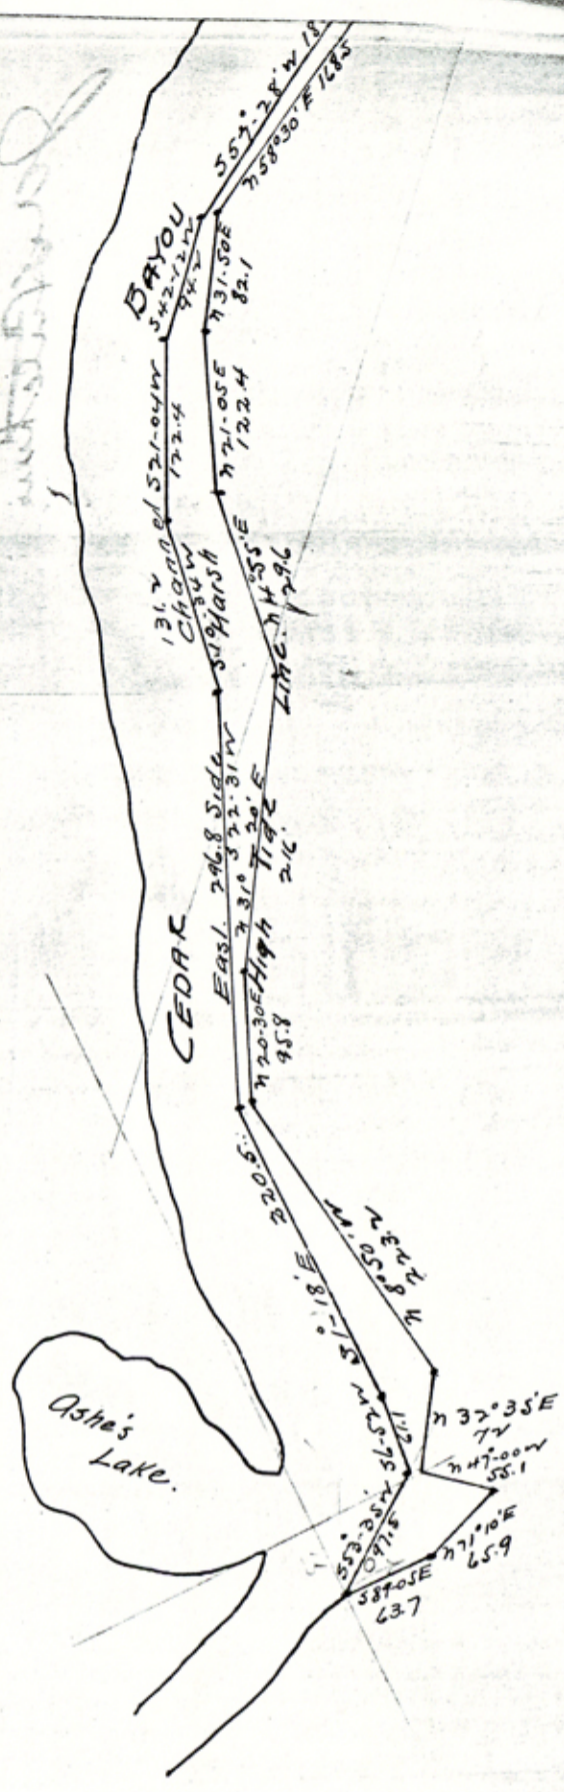 S57°-28'W 18
N58°30'E 168.5
BAYOU
S42-12W
94.2
N31-50E
82.1
S21-04W
122.4
N21-05E
122.4
131.2
Channel
Marsh
N4°55'E
129.6
Line
East 296.8 Side
S22-31W
N 31° 20' E
Tide
216'
CEDAR
High
N20-30E
95.8
220.5
S1°-18'E
N 8°50'W
223.2
S6-52W
61.1
N 32°35'E
72
N47-00W
55.1
Ashe's
Lake.
S53°-35'W
97.5
N71°10'E
65.9
S89-05E
63.7